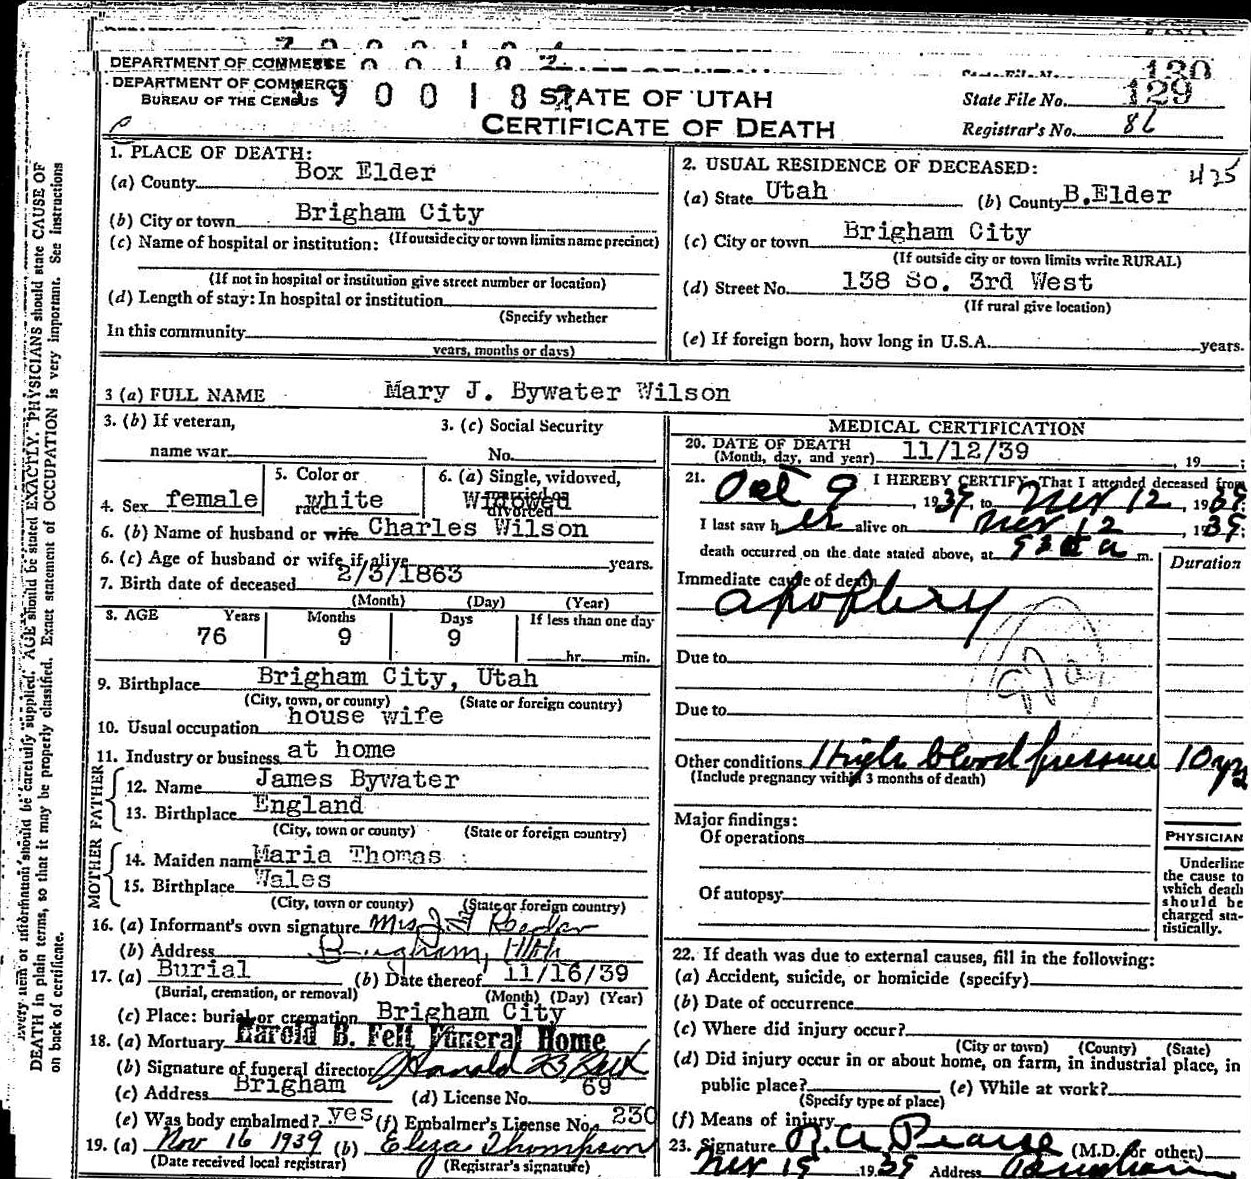 DEPARTMENT OF COMMERCE
DEPARTMENT OF COMMERCE
BUREAU OF THE CENSUS
STATE OF UTAH
CERTIFICATE OF DEATH
130
State File No. 129
Registrar's No. 86
1. PLACE OF DEATH:
(a) County Box Elder
(b) City or town Brigham City
(c) Name of hospital or institution: (If outside city or town limits name precinct)
(If not in hospital or institution give street number or location)
(d) Length of stay: In hospital or institution
(Specify whether
In this community
years, months or days)
2. USUAL RESIDENCE OF DECEASED:
425
(a) State Utah (b) County B.Elder
(c) City or town Brigham City
(If outside city or town limits write RURAL)
(d) Street No. 138 So. 3rd West
(If rural give location)
(e) If foreign born, how long in U.S.A. years.
3 (a) FULL NAME Mary J. Bywater Wilson
3. (b) If veteran,
name war
3. (c) Social Security
No.
4. Sex female
5. Color or
race white
6. (a) Single, widowed,
married or
divorced Widowed
6. (b) Name of husband or wife Charles Wilson
6. (c) Age of husband or wife if alive years.
7. Birth date of deceased 2/3/1863
(Month) (Day) (Year)
8. AGE Years Months Days If less than one day
76 9 9
hr. min.
9. Birthplace Brigham City, Utah
(City, town, or county) (State or foreign country)
10. Usual occupation house wife
11. Industry or business at home
FATHER
12. Name James Bywater
13. Birthplace England
(City, town or county) (State or foreign country)
MOTHER
14. Maiden name Maria Thomas
15. Birthplace Wales
(City, town or county) (State or foreign country)
16. (a) Informant's own signature Mrs J.
(b) Address Brigham, Utah
17. (a) Burial (b) Date thereof 11/16/39
(Burial, cremation, or removal) (Month) (Day) (Year)
(c) Place: burial or cremation Brigham City
18. (a) Mortuary Harold B. Felt Funeral Home
(b) Signature of funeral director Harold B Felt
(c) Address Brigham (d) License No. 69
(e) Was body embalmed? yes (f) Embalmer's License No. 230
19. (a) Nov 16 1939 (b) Eliza Thompson
(Date received local registrar) (Registrar's signature)
MEDICAL CERTIFICATION
20. DATE OF DEATH
(Month, day, and year) 11/12/39, 19 ;
21. I HEREBY CERTIFY, That I attended deceased from
Oct 9, 1939, to Nov 12, 1939.
I last saw her alive on Nov 12 1939.
death occurred on the date stated above, at m.
Duration
Immediate cause of death
apoplexy
Due to
Due to
Other conditions High blood pressure 10 yrs
(Include pregnancy within 3 months of death)
Major findings:
Of operations
Of autopsy
PHYSICIAN
Underline
the cause to
which death
should be
charged sta-
tistically.
22. If death was due to external causes, fill in the following:
(a) Accident, suicide, or homicide (specify)
(b) Date of occurrence
(c) Where did injury occur?
(City or town) (County) (State)
(d) Did injury occur in or about home, on farm, in industrial place, in
public place? (e) While at work?
(Specify type of place)
(f) Means of injury
23. Signature R.A. Pearse (M.D. or other.)
Nov 15 1939 Address Brigham
Every item of information should be carefully supplied. AGE should be stated EXACTLY. PHYSICIANS should state CAUSE OF
DEATH in plain terms, so that it may be properly classified. Exact statement of OCCUPATION is very important. See Instructions
on back of certificate.